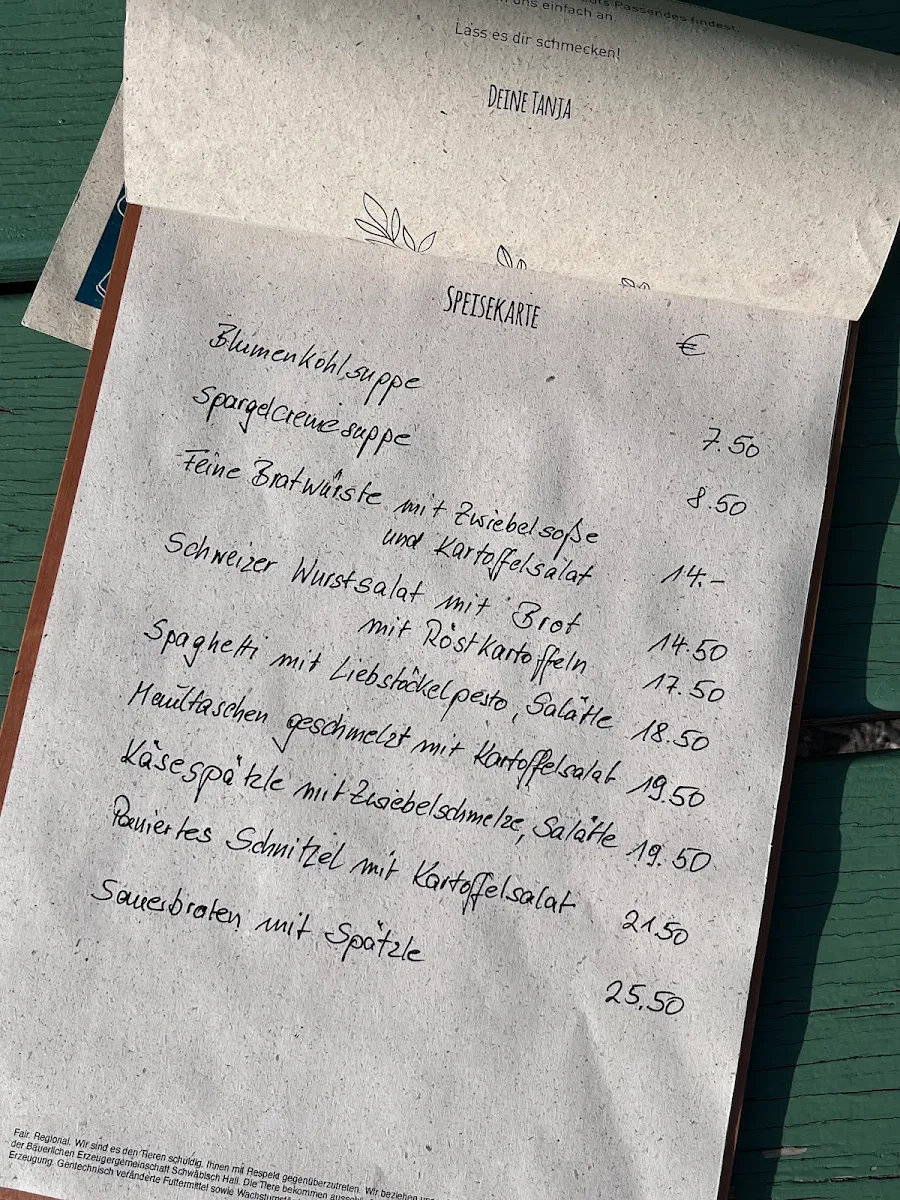 uns einfach an.
Passendes findest.
Lass es dir schmecken!
DEINE TANJA
SPEISEKARTE
€
Blumenkohlsuppe 7.50
Spargelcremesuppe 8.50
Feine Bratwürste mit Zwiebelsoße
und Kartoffelsalat 14.-
Schweizer Wurstsalat mit Brot 14.50
mit Röstkartoffeln 17.50
Spaghetti mit Liebstöckelpesto, Salätle 18.50
Maultaschen geschmelzt mit Kartoffelsalat 19.50
Käsespätzle mit Zwiebelschmelze, Salätle 19.50
Paniertes Schnitzel mit Kartoffelsalat 21.50
Sauerbraten mit Spätzle 25,50
Fair. Regional. Wir sind es den Tieren schuldig, Ihnen mit Respekt gegenüberzutreten. Wir beziehen
der Bäuerlichen Erzeugergemeinschaft Schwäbisch Hall. Die Tiere bekommen
Erzeugung. Gentechnisch veränderte Futtermittel sowie